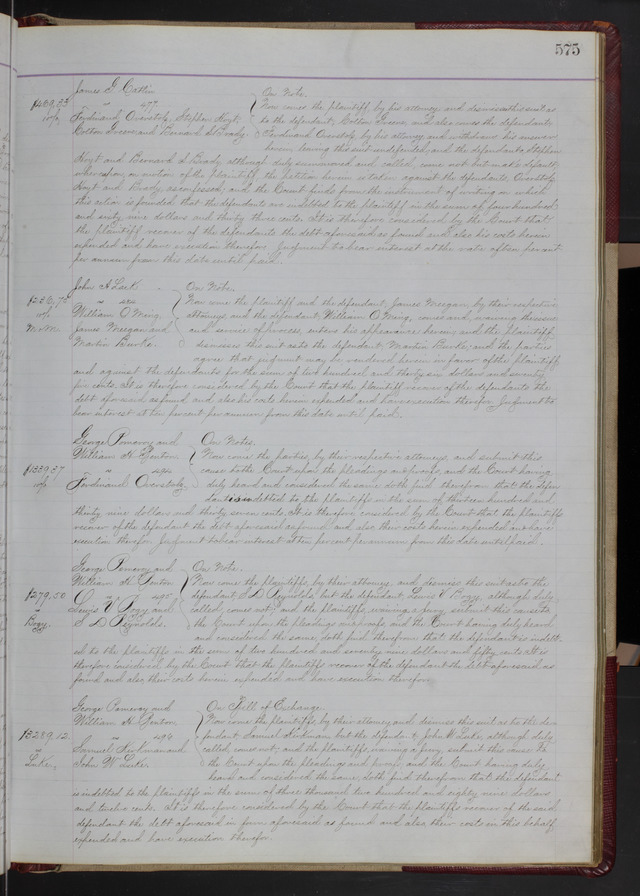 575
James G. Catlin
" 477
Ferdinand Overstolz, Stephen Hoyt,
Colton Greene and Bernard S. Brady.
$469.33
w/o
On Note.
Now comes the plaintiff, by his attorney and dismisses this suit as
to the defendant, Colton Greene, and also comes the defendant,
Ferdinand Overstolz by his attorney and withdraws his answer
herein, leaving this suit undefended, and the defendants Stephen
Hoyt and Bernard S. Brady although duly summoned and called, come not but make default,
whereupon, on motion of the plaintiff, the petition herein is taken against the defendants, Overstolz,
Hoyt and Brady, as confessed; and the Court finds from the instrument of writing on which
this action is founded that the defendants are indebted to the plaintiff in the sum of four hundred
and sixty nine dollars and thirty three cents. It is therefore considered by the Court that
the plaintiff recover of the defendants the debt aforesaid as found and also his costs herein
expended and have execution therefor. Judgment to bear interest at the rate of ten per cent
per annum from this date until paid.
John A. Lark
"
William O. Wing,
James Meegan and
Martin Burke.
$236.70
w/o
On Note.
Now come the plaintiff and the defendant, James Meegan, by their respective
attorneys and the defendant William O. Wing, comes and, waiving the issue
and service of process, enters his appearance herein; and the plaintiff
dismisses this suit as to the defendant Martin Burke; and the parties
agree that judgment may be rendered herein in favor of the plaintiff
and against the defendants for the sum of two hundred and thirty six dollars and seventy
cents. It is therefore considered by the Court that the plaintiff recover of the defendants the
debt aforesaid as found and also his costs herein expended and have execution therefor. Judgment to
bear interest at ten per cent per annum from this date until paid.
George Pomeroy and
William H. Benton
" 494
Ferdinand Overstolz.
$1339.37
w/o
On Notes.
Now come the parties, by their respective attorneys, and submit this
cause to the Court upon the pleadings and proofs, and the Court having
duly heard and considered the same, doth find therefrom that the defen-
dant is indebted to the plaintiffs in the sum of thirteen hundred and
thirty nine dollars and thirty seven cents. It is therefore considered by the Court that the plaintiffs
recover of the defendant the debt aforesaid as found and also their costs herein expended and have
execution therefor. Judgment to bear interest at ten per cent per annum from this date until paid.
George Pomeroy and
William H. Benton
" 495
Lewis V. Bogy and
S. D. Reynolds.
$279.50
"
Bogy.
On Note.
Now come the plaintiffs, by their attorney, and dismiss this suit as to the
defendant, S. D. Reynolds, but the defendant, Lewis V. Bogy, although duly
called, comes not; and the plaintiffs, waiving a jury, submit this cause to
the Court upon the pleadings and proofs, and the Court having duly heard
and considered the same, doth find therefrom that the defendant is indebt-
ed to the plaintiffs in the sum of two hundred and seventy nine dollars and fifty cents. It is
therefore considered by the Court that the plaintiffs recover of the defendant the debt aforesaid as
found and also their costs herein expended and have execution therefor.
George Pomeroy and
William H. Benton.
" 496
Samuel and
John W. Luke
$3289.12
"
Luke.
On Bill of Exchange.
Now come the plaintiffs, by their attorney, and dismiss this suit as to the de-
fendant Samuel but the defendant, John W. Luke, although duly
called, comes not; and the plaintiffs, waiving a jury, submit this cause to
the Court upon the pleadings and proofs, and the Court having duly
heard and considered the same, doth find therefrom that the defendant
is indebted to the plaintiffs in the sum of three thousand two hundred and eighty nine dollars
and twelve cents. It is therefore considered by the Court that the plaintiffs recover of the said
defendant the debt aforesaid in form aforesaid as found and also their costs in this behalf
expended and have execution therefor.